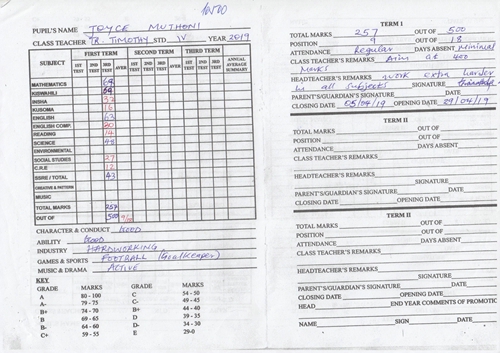 PUPIL'S NAME JOYCE MUTHONI
CLASS TEACHER TR. TIMOTHY STD IV YEAR 2019
SUBJECT FIRST TERM SECOND TERM THIRD TERM ANNUAL AVERAGE SUMMARY
1ST TEST 2ND TEST 3RD TEST AVER 1ST TEST 2ND TEST 3RD TEST AVER 1ST TEST 2ND TEST 3RD TEST AVER
MATHEMATICS
KISWAHILI
INSHA
KUSOMA 16
ENGLISH 63
ENGLISH COMP. 20
READING 14
SCIENCE 48
ENVIRONMENTAL
SOCIAL STUDIES 27
C.R.E 12
SSRE / TOTAL 43
CREATIVE & PATTERN
MUSIC
TOTAL MARKS 257
OUT OF 500
CHARACTER & CONDUCT GOOD
ABILITY GOOD
INDUSTRY HARDWORKING
GAMES & SPORTS FOOTBALL (Goalkeeper)
MUSIC & DRAMA ACTIVE
KEY
GRADE MARKS GRADE MARKS
A 80 - 100 C 54 - 50
A- 79-75 C- 49-45
B+ 74-70 B+ 44-40
B 69-65 D 39-35
B- 64-60 D- 34-30
C+ 59-55 E 29-0
TERM I
TOTAL MARKS 257 OUT OF 500
POSITION 9 OUT OF 18
ATTENDANCE Regular DAYS ABSENT Minimal
CLASS TEACHER'S REMARKS Aim at 400
Marks
HEADTEACHER'S REMARKS Work extra harder
in all subjects SIGNATURE
PARENT'S/GUARDIAN'S SIGNATURE DATE
CLOSING DATE 05/04/19 OPENING DATE 29/04/19
TERM II
TOTAL MARKS OUT OF
POSITION OUT OF
ATTENDANCE DAYS ABSENT
CLASS TEACHER'S REMARKS
HEADTEACHER'S REMARKS
SIGNATURE
PARENT'S/GUARDIAN'S SIGNATURE DATE
CLOSING DATE OPENING DATE
TERM II
TOTAL MARKS OUT OF
POSITION OUT OF
ATTENDANCE DAYS ABSENT
CLASS TEACHER'S REMARKS
HEADTEACHER'S REMARKS
SIGNATURE
PARENT'S/GUARDIAN'S SIGNATURE DATE
CLOSING DATE OPENING DATE
HEAD END YEAR COMMENTS OF PROMOTIC
NAME SIGN DATE